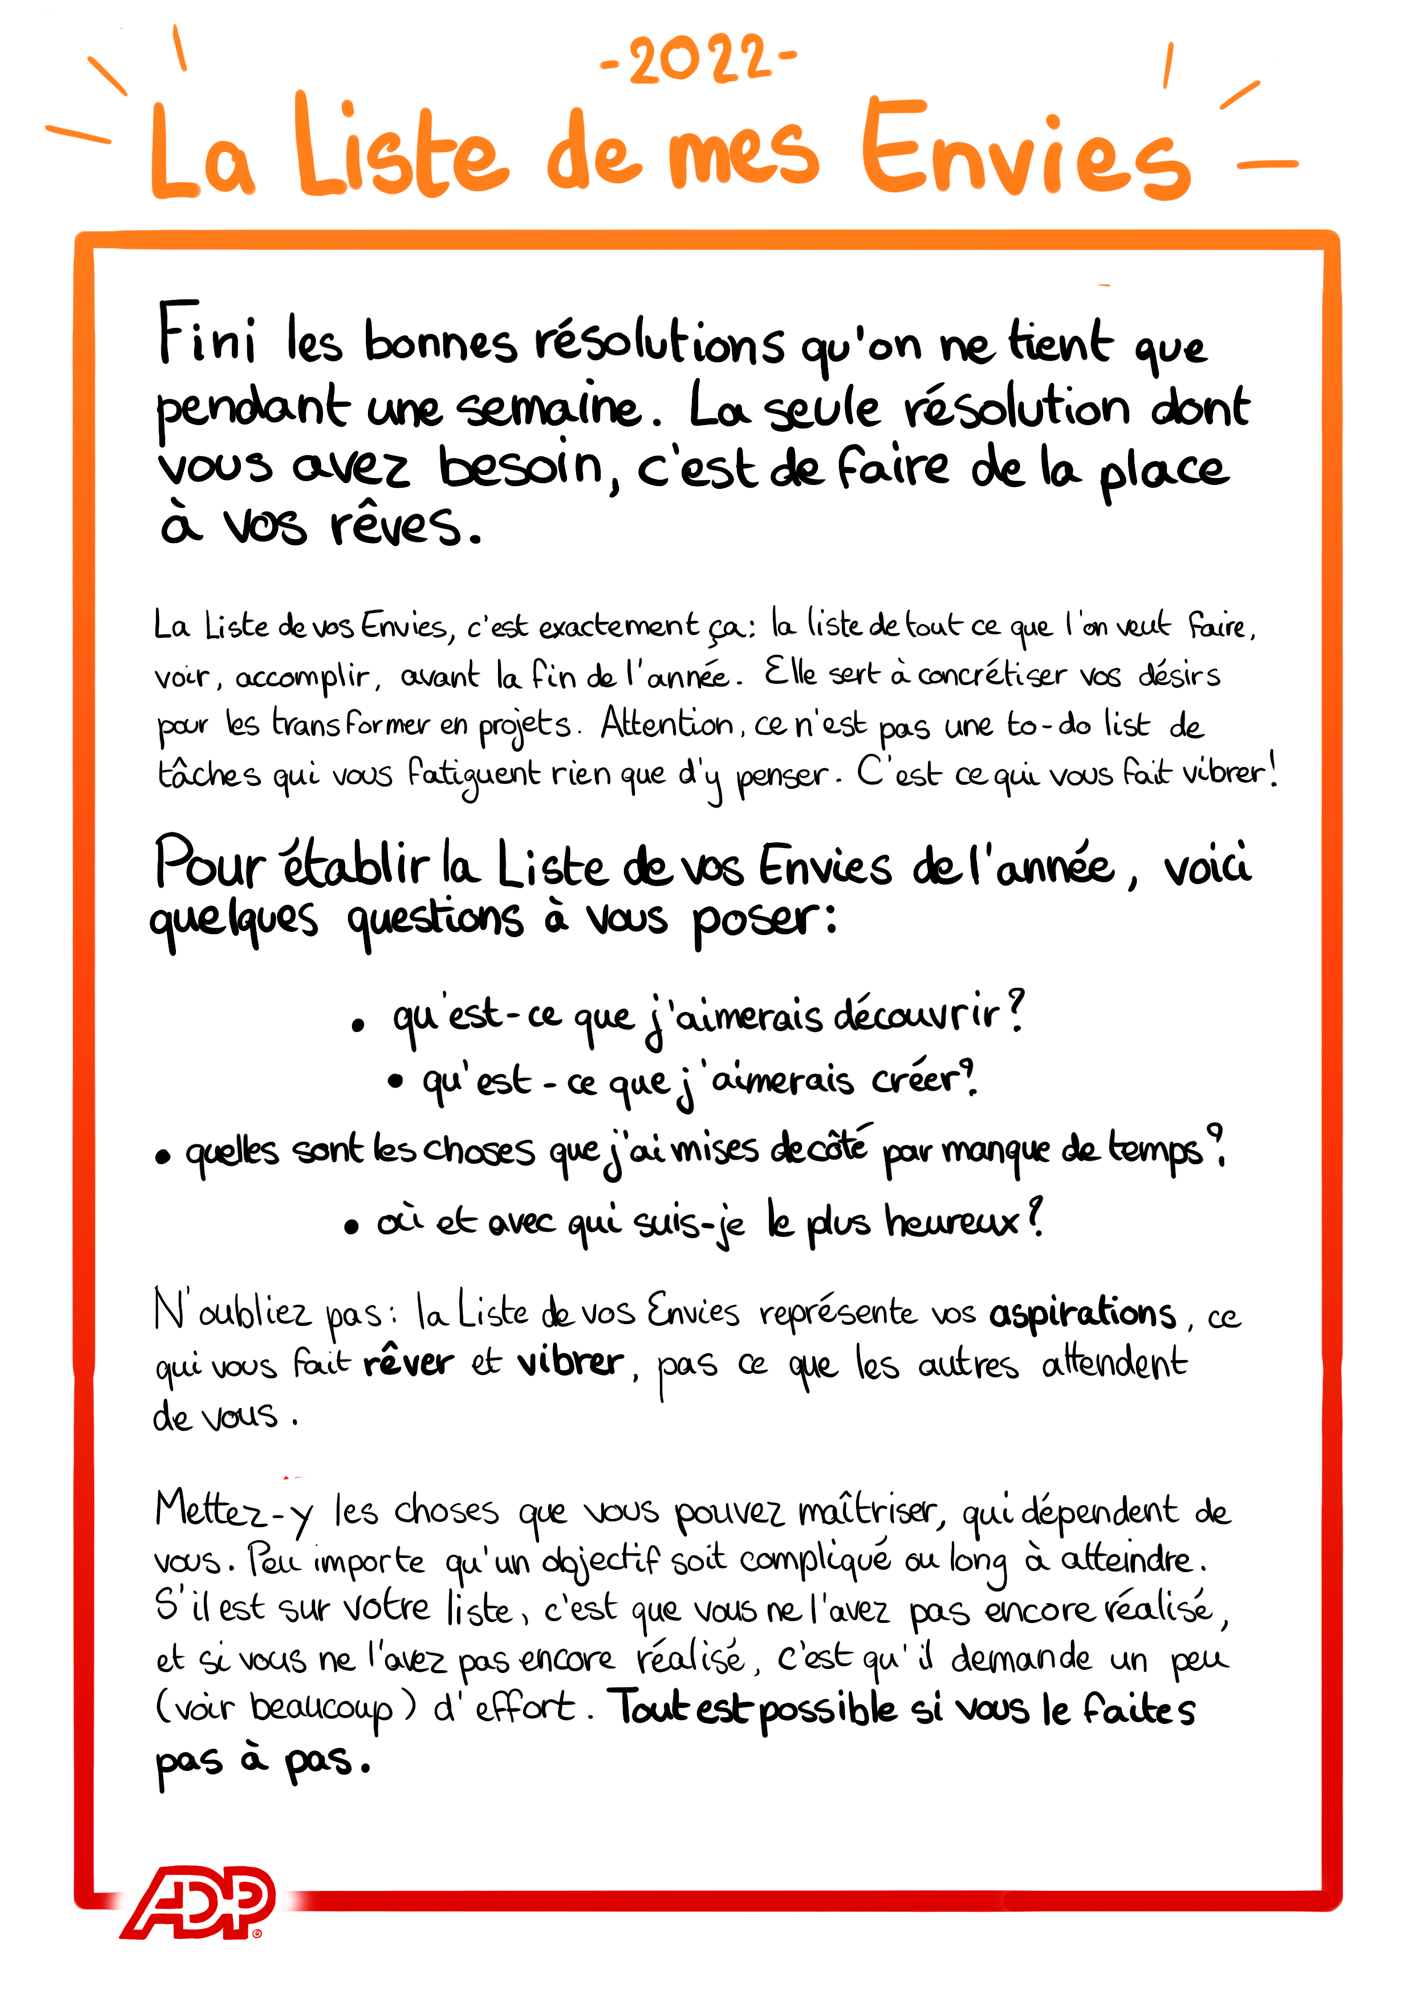 -2022-
La Liste de mes Envies
Fini les bonnes résolutions qu'on ne tient que
pendant une semaine. La seule résolution dont
vous avez besoin, c'est de faire de la place
à vos rêves.
La Liste de vos Envies, c'est exactement ça: la liste de tout ce que l'on veut faire,
voir, accomplir, avant la fin de l'année. Elle sert à concrétiser vos désirs
pour les transformer en projets. Attention, ce n'est pas une to-do list de
tâches qui vous fatiguent rien que d'y penser. C'est ce qui vous fait vibrer!
Pour établir la Liste de vos Envies de l'année, voici
quelques questions à vous poser:
• qu'est-ce que j'aimerais découvrir?
• qu'est-ce que j'aimerais créer?
• quelles sont les choses que j'ai mises de côté par manque de temps?
• où et avec qui suis-je le plus heureux?
N'oubliez pas: la Liste de vos Envies représente vos aspirations, ce
qui vous fait rêver et vibrer, pas ce que les autres attendent
de vous.
Mettez-y les choses que vous pouvez maîtriser, qui dépendent de
vous. Peu importe qu'un objectif soit compliqué ou long à atteindre.
S'il est sur votre liste, c'est que vous ne l'avez pas encore réalisé,
et si vous ne l'avez pas encore réalisé, c'est qu'il demande un peu
(voir beaucoup) d'effort. Tout est possible si vous le faites
pas à pas.
ADP®